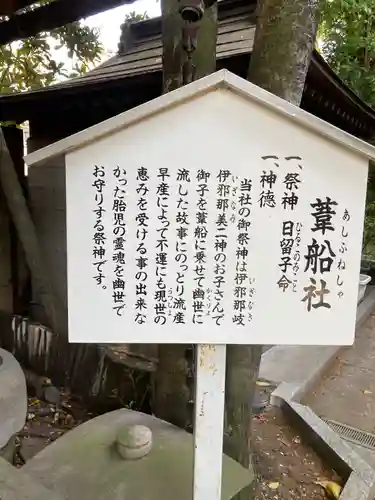 葦船社
あしふねしゃ
一、祭神 日留子命
ひなこのみこと
一、神徳
当社の御祭神は伊邪那岐
いざなぎ
伊邪那美二神のお子さんで
いざなみ
御子を葦船に乗せて幽世に
流した故事にのっとり流産
早産によって不運にも現世の
うつしよ
恵みを受ける事の出来な
かった胎児の霊魂を幽世で
お守りする祭神です。